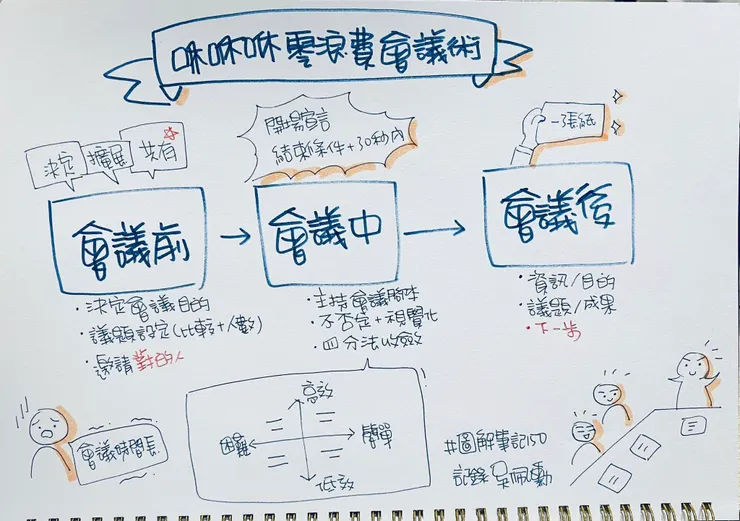 咻咻咻零浪費會議術
決定
擴展
共有
開場宣言
結束條件+30秒內
一張紙
會議前
會議中
會議後
・決定會議目的
・議題設定(比較+人數)
・邀請對的人
・主持會議腳本
・不否定+視覺化
・四分法收斂
・資訊/目的
・議題/成果
・下一步
會議時間長
高效
困難
簡單
低效
#圖解事記150
記錄 吳珮勳